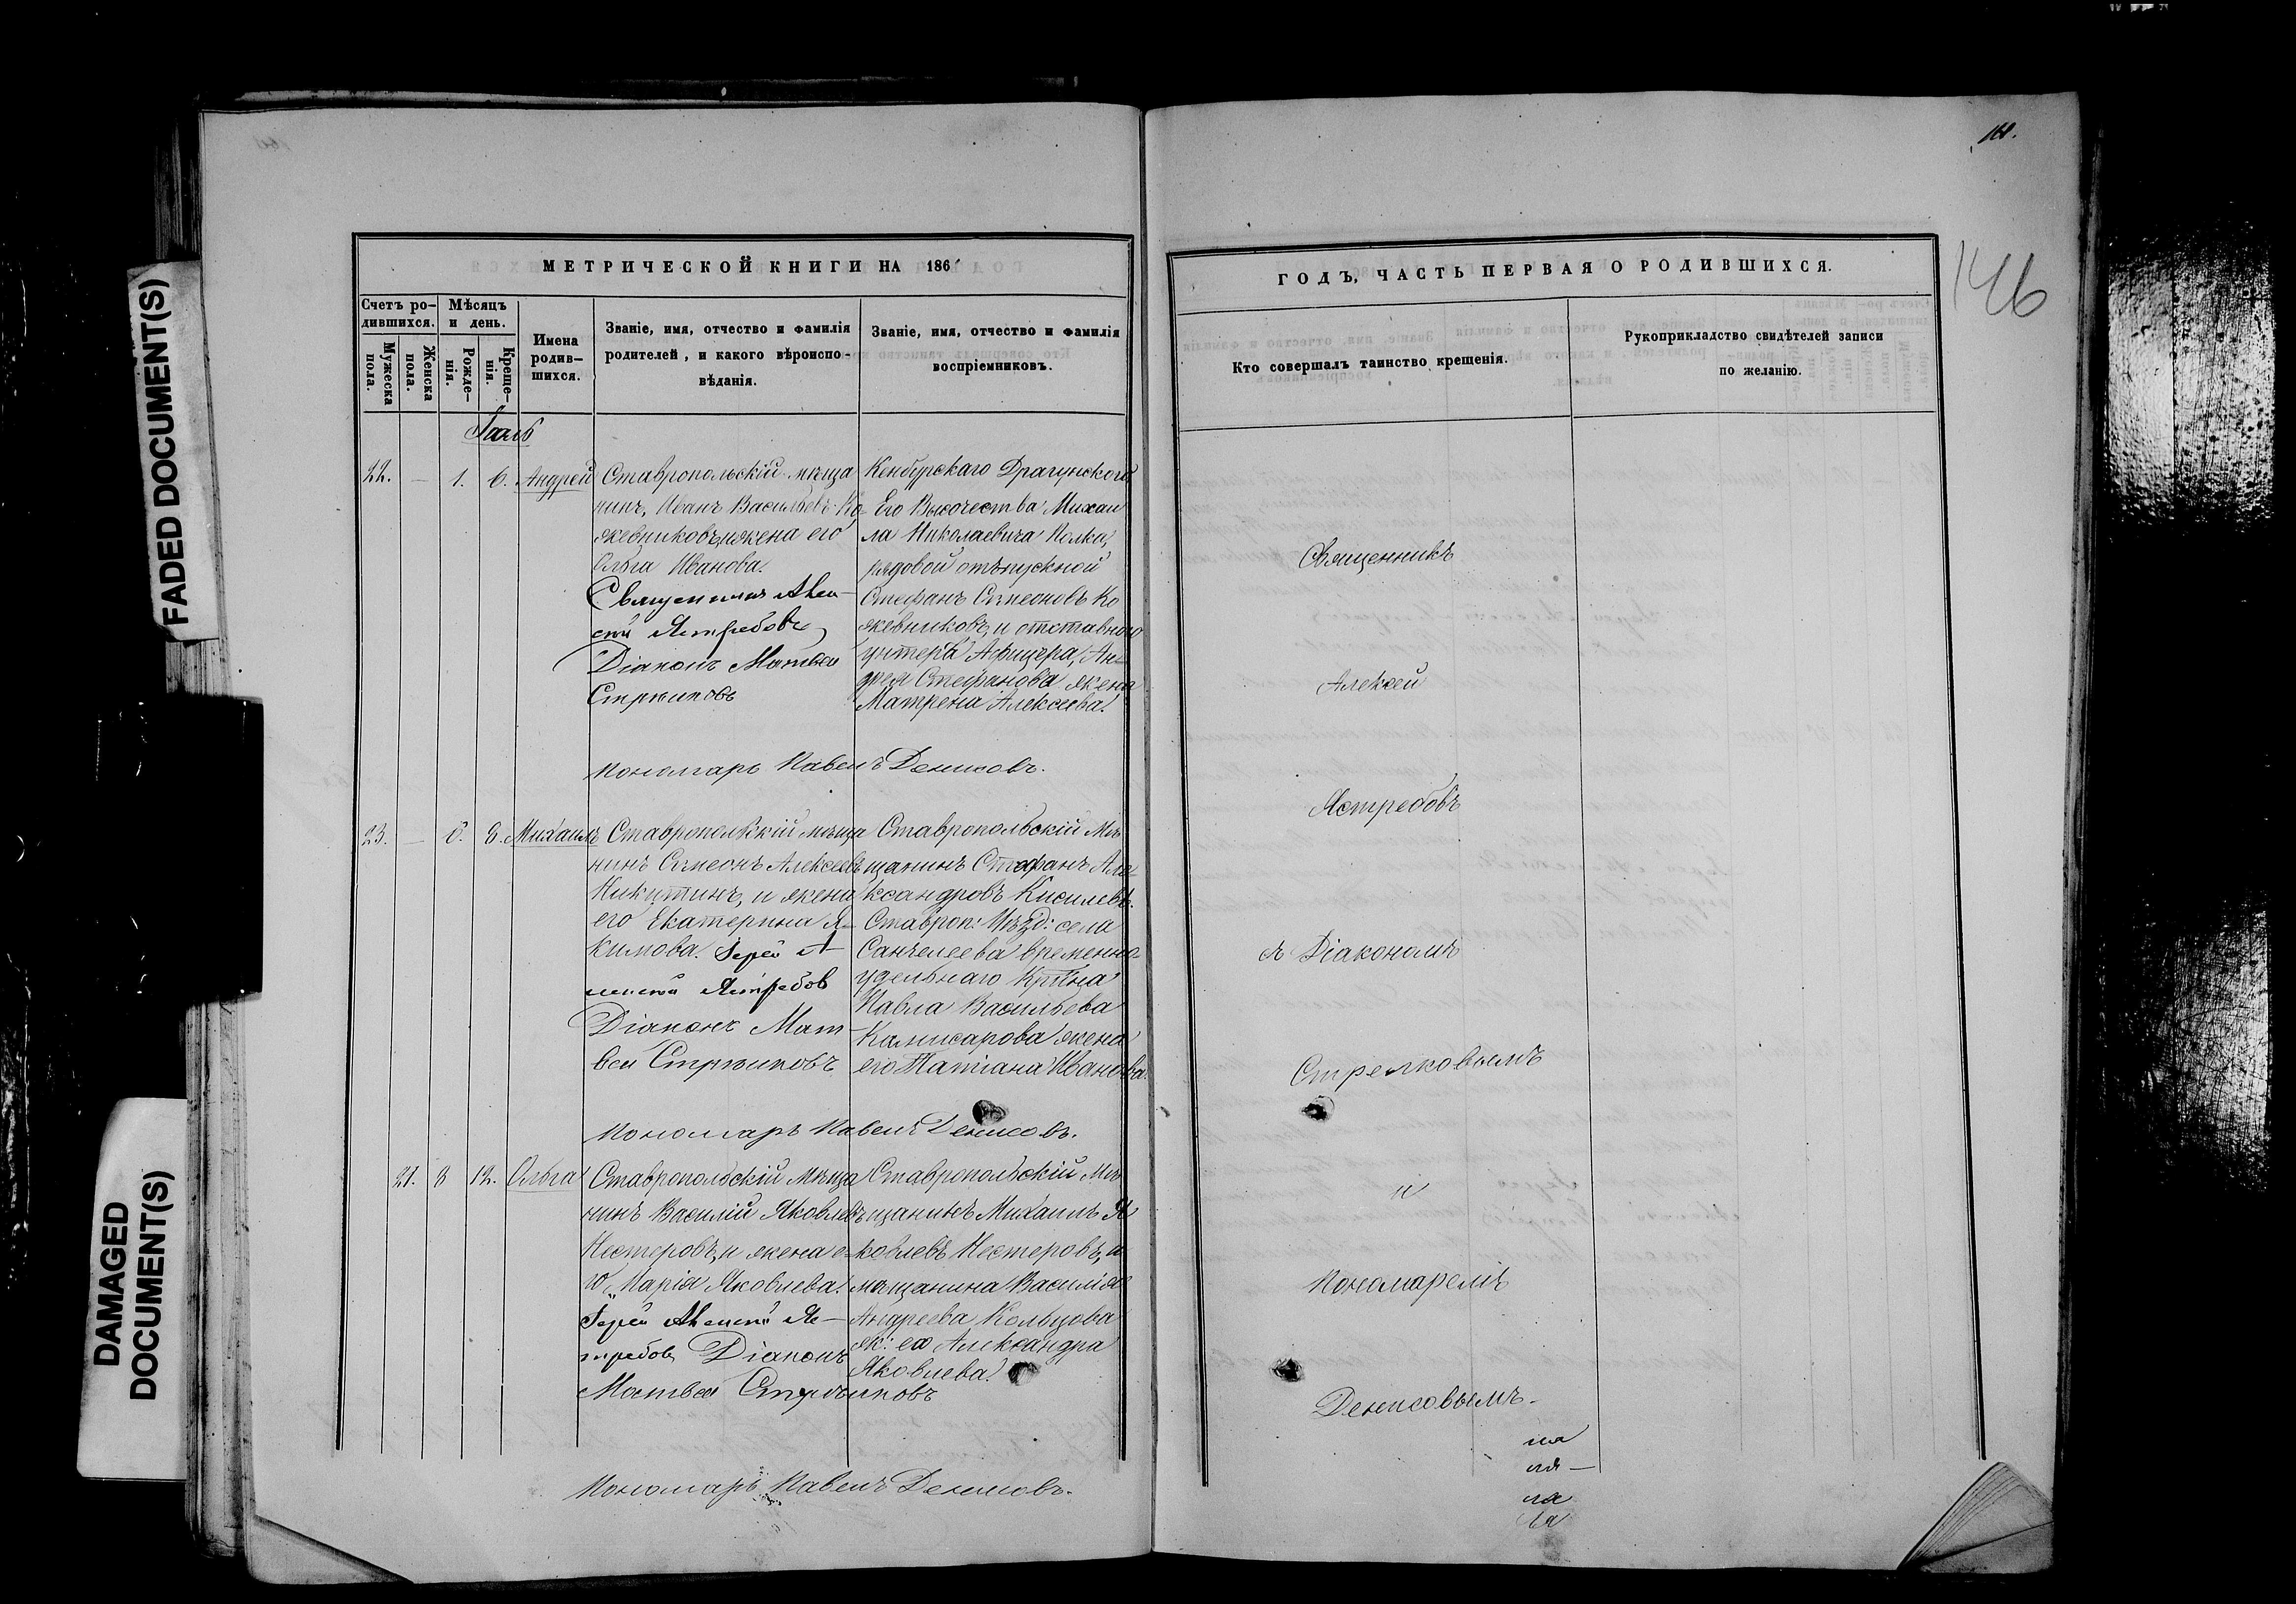 FADED DOCUMENT(S)
DAMAGED
DOCUMENT(S)
МЕТРИЧЕСКОЙ КНИГИ НА 186
Счетъ ро-
дившихся.
Мужеска
пола.
Женска
пола.
Мѣсяцъ
и день.
Рожде-
нія.
Креще-
нія.
Имена
родив-
шихся.
Званіе, имя, отчество и фамилія
родителей, и какого вѣроиспо-
вѣданія.
Званіе, имя, отчество и фамилія
воспріемниковъ.
22. — 1. 6. Андрей
Ставропольскій мѣща
нинъ, Иванъ Васильевъ Ко
жевниковъ, и жена его
Ольга Иванова.
Священникъ Алек-
сѣй Ястребовъ
Діаконъ Матвей
Стрѣлковъ
Кенбурскаго Драгунскаго
Его Высочества Михаи
ла Николаевича Полка,
рядовой отпускной
Стефанъ Симеоновъ Ко
жевниковъ, и отставнаго
унтеръ Афицера, Ан-
дрея Стефанова жена
Матрена Алексеева.
Пономарь Павелъ Денисовъ.
23. — 6. 8. Михаилъ
Ставропольскій мѣща
нинъ Симеонъ Алексеевъ
Никитинъ, и жена
его Екатерина Я-
кимова. Іерей А-
лексѣй Ястребов
Діаконъ Мат-
вей Стрѣлковъ
Ставропольскій Мѣ
щанинъ Стефанъ Але-
ксандровъ Кисилевъ.
Ставроп: Уѣзд: села
Санчелеева временно-
удельнаго Крт҃на
Павла Васильева
Камисарова жена
его Татіана Иванова.
Пономарь Павелъ Денисовъ.
21. 8 12. Ольга
Ставропольскій Мѣща
нинъ Василій Яковлевъ
Нестеровъ, и жена е-
го Марія Яковлева.
Іерей Алексѣй Яс-
требовъ Діаконъ
Матвей Стрѣлковъ
Ставропольскій Мѣ
щанинъ Михаилъ Я
ковлевъ Нестеровъ, и
мѣщанина Василія
Андреева Кольцова
ж: его Александра
Яковлева.
Пономарь Павелъ Денисовъ.
146
ГОДЪ, ЧАСТЬ ПЕРВАЯ О РОДИВШИХСЯ.
Кто совершалъ таинство крещенія.
Рукоприкладство свидѣтелей записи
по желанію.
Священникъ
Алексей
Ястребовъ
съ Діакономъ
Стрелковымъ
и
Пономаремъ
Денисовымъ.